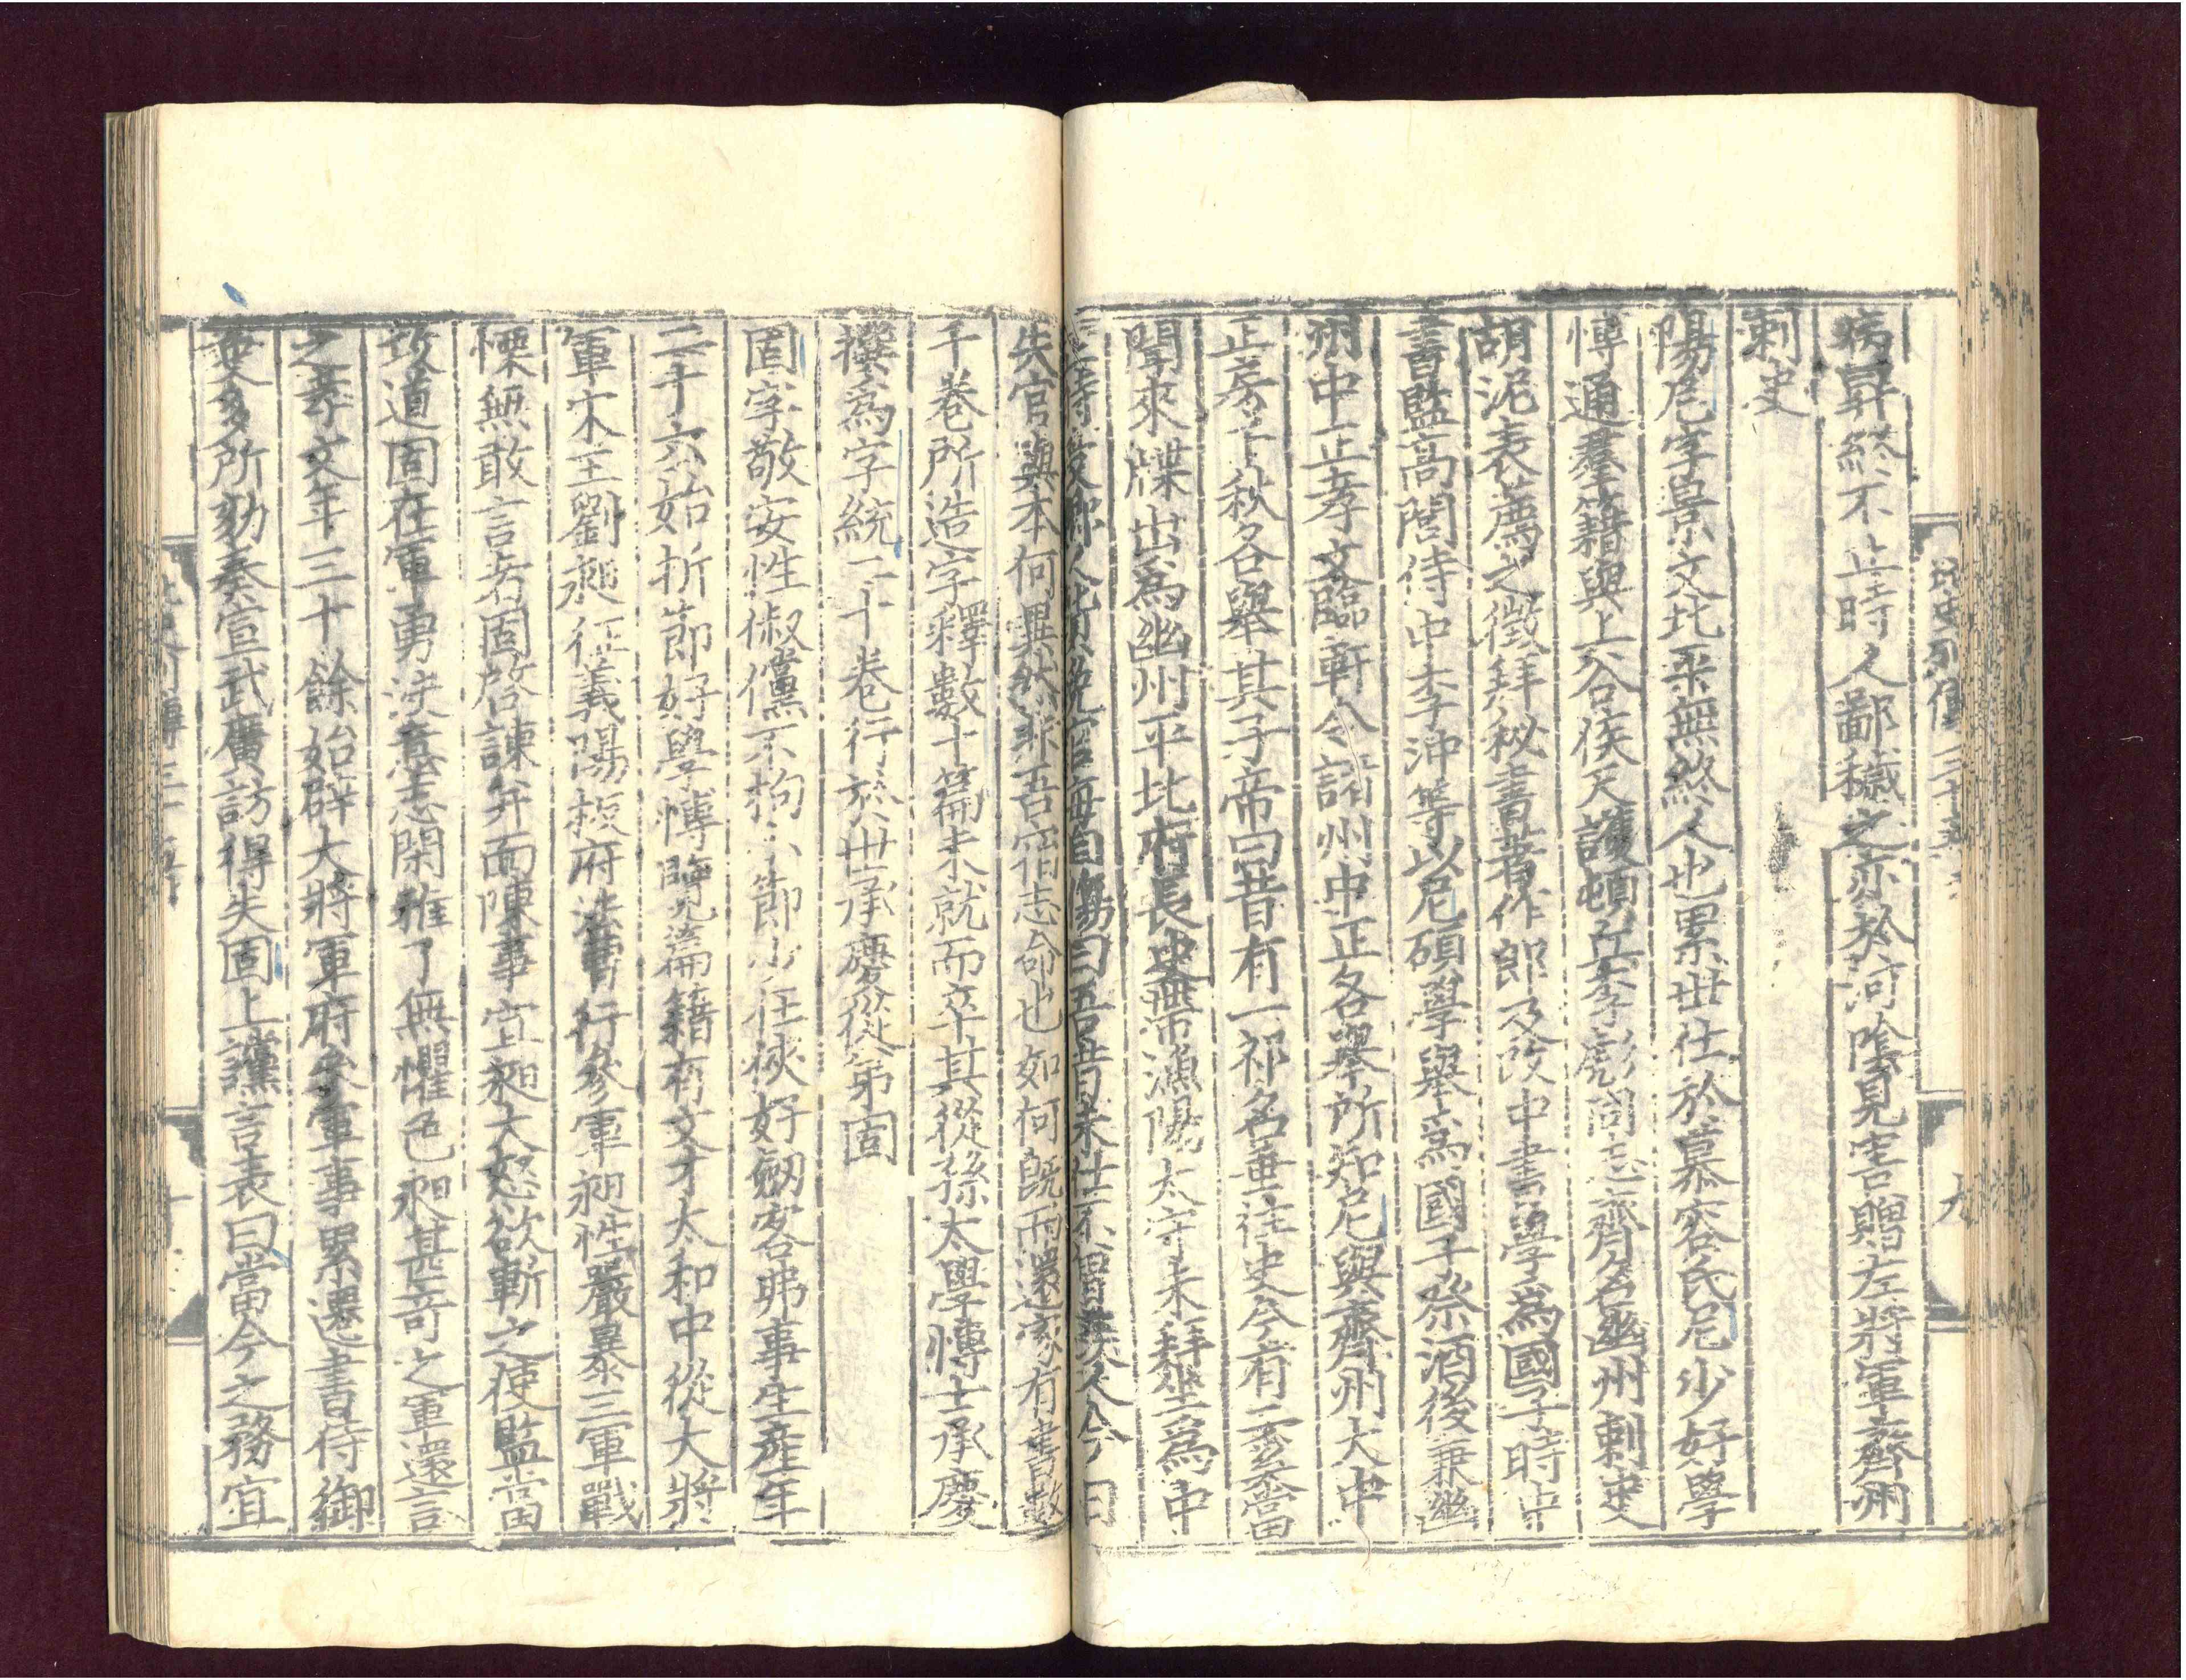 病昇終不止時人鄙穢之亦於河陰見害贈左將軍齊州
刺史
陽尼字景文北平無終人也累世仕於慕容氏尼少好學
博通羣籍與上谷侯天護頓丘李彪同志齊名幽州刺史
胡泥表薦之徵拜秘書著作郎及改中書學為國子時中
書監高閭侍中李沖等以尼碩學舉為國子祭酒後兼幽
州中正孝文臨軒令諸州中正各舉所知尼與齊州大中
正房千秋各舉其子帝曰昔有一祁名垂往史今有二奚當
聞來牒出為幽州平北府長史帶漁陽太守未拜坐為中
正時受鄉人貨免官每自傷曰吾昔未仕不曾羨人今日
失官與本何異然非吾宿志命也如何既而還家有書數
千卷所造字釋數十篇未就而卒其從孫太學博士承慶
撰為字統二十卷行於世承慶從弟固
固字敬安性俶儻不拘小節少任俠好劒客弗事生產年
二十六始折節好學博覽篇籍有文才太和中從大將
軍宋王劉昶征義陽板府法曹行參軍昶性嚴暴三軍戰
慄無敢言者固啓諫并面陳事宜昶大怒欲斬之使監當
攻道固在軍勇決意志閑雅了無懼色昶甚奇之軍還言
之孝文年三十餘始辟大將軍府參軍事累遷書侍御
史多所劾奏宣武廣訪得失固上讜言表曰當今之務宜
北史列傳三十五
九
列傳三十五
十